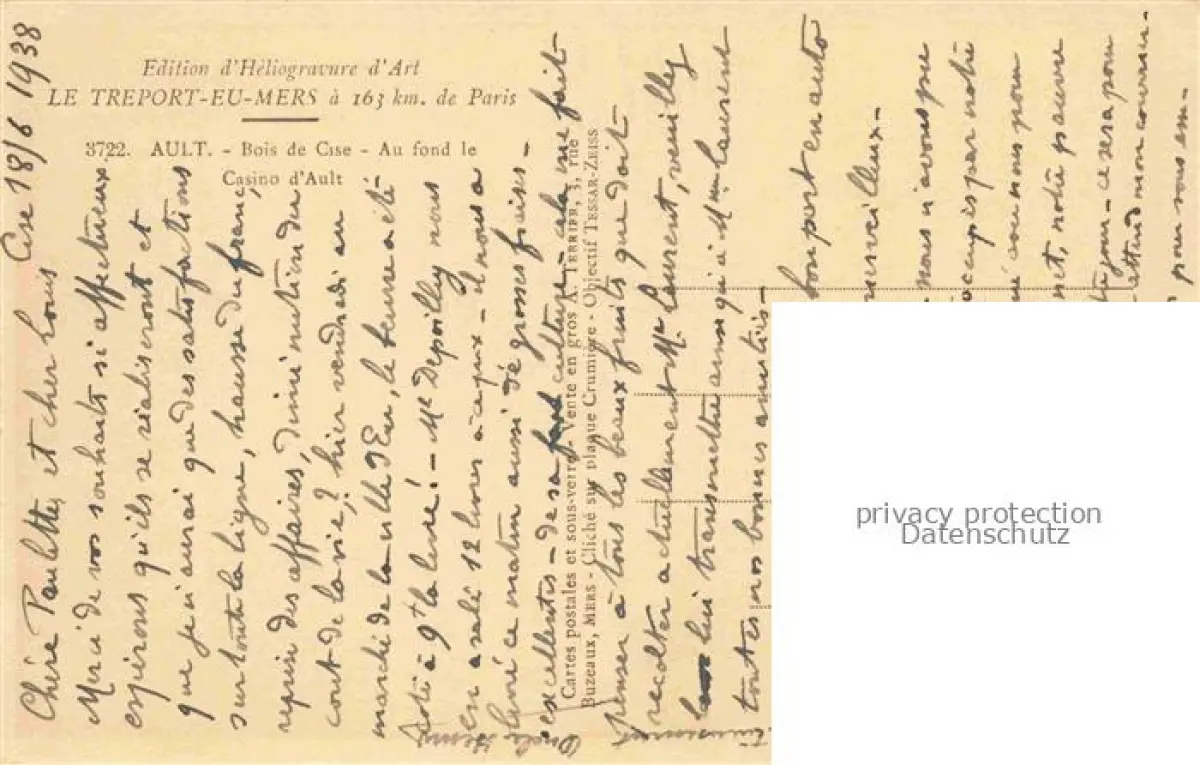 Edition d'Héliogravure d'Art
LE TREPORT-EU-MERS à 163 km. de Paris
3722. AULT. - Bois de Cise - Au fond le
Casino d'Ault
Cise 18/6 1938
Chère Paulette, et cher Louis
Merci de vos souhaits si affectueux
espérons qu'ils se réaliseront et
que je n'aurai que des satisfactions
sur toute la ligne, hausse du franc,
reprise des affaires, diminution du
cout de la vie? hier vendredi au
marché de la ville d'Eu, le beurre a été
coté à 9f la livre! - Mr Depoilly nous
en a salé 12 livres à ce prix - il nous a
livré ce matin aussi de grosses fraises
excellentes - de sa culture - cela me fait
penser à tous les beaux fruits que doit
recolter actuellement Mr Laurent, veuillez
lui transmettre ainsi qu'à Mme Laurent
toutes nos bonnes amitiés -
Cartes postales et sous-verre - Vente en gros A. TERRIER, 3, rue
Buzeaux, MERS - Cliché sur plaque Crumière - Objectif TESSAR-ZEISS
bon port en auto
merveilleux -
nous n'avons pu
occupés par notre
avons nous pour
notre pauvre
jour - ce sera pour
attend mon courrier -
pour nous em-
Oncle
privacy protection
Datenschutz